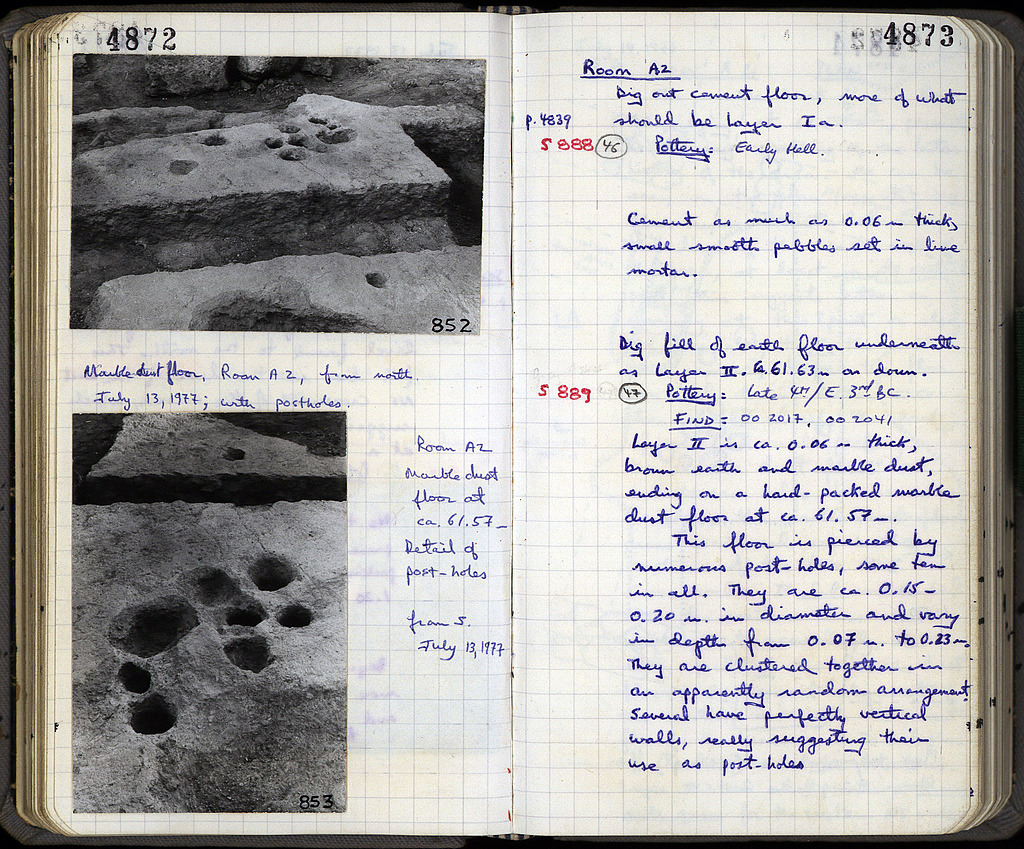 4872
852
Marble dust floor, Room A2, from north.
July 13, 1977; with postholes.
Room A2
Marble dust
floor at
ca. 61.57m
Detail of
post-holes
from S.
July 13, 1977
853
4873
Room A2
Dig out cement floor, more of what
p. 4839 should be Layer Ia.
S 888 46 Pottery: Early Hell.
Cement as much as 0.06 m thick,
small smooth pebbles set in lime
mortar.
Dig fill of earth floor underneath
as Layer II. 61.63m on down.
S 889 47 Pottery: Late 4th/E. 3rd BC.
FIND: OO 2017, OO 2041
Layer II is ca. 0.06 m thick,
brown earth and marble dust,
ending on a hard-packed marble
dust floor at ca. 61.57m.
This floor is pierced by
numerous post-holes, some ten
in all. They are ca. 0.15-
0.20 m. in diameter and vary
in depth from 0.07 m. to 0.23 m.
They are clustered together in
an apparently random arrangement.
Several have perfectly vertical
walls, really suggesting their
use as post-holes